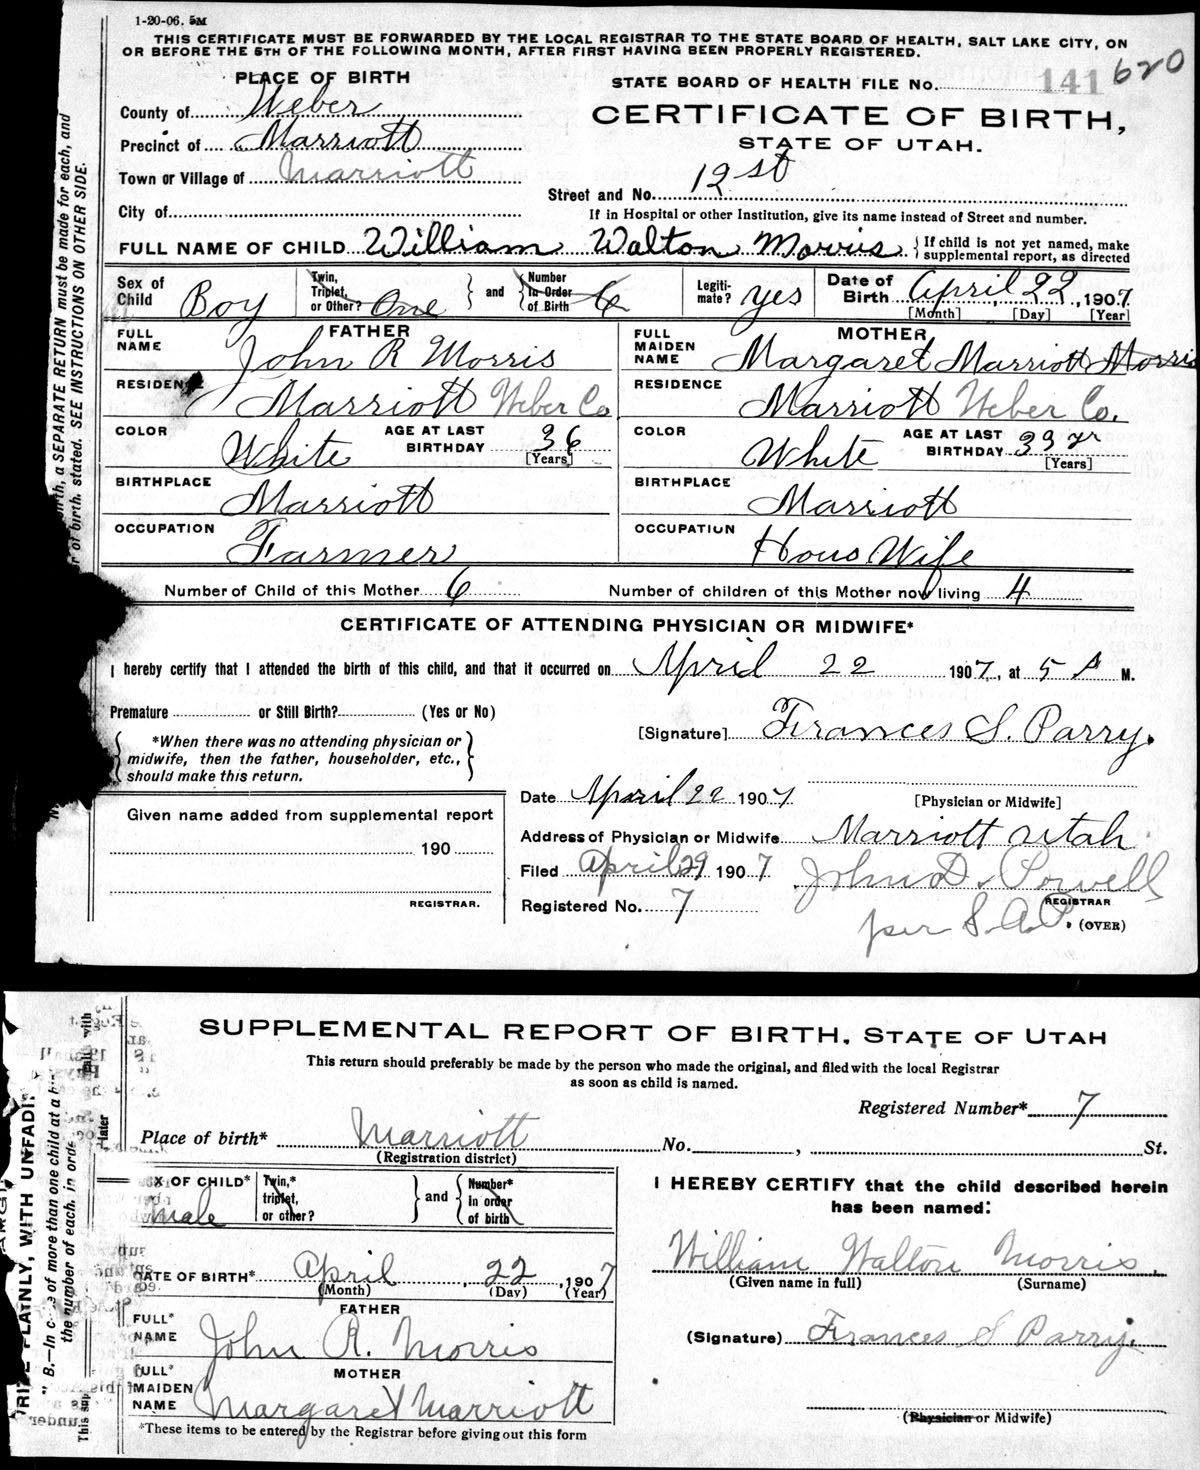 1-20-06. 5M
THIS CERTIFICATE MUST BE FORWARDED BY THE LOCAL REGISTRAR TO THE STATE BOARD OF HEALTH, SALT LAKE CITY, ON
OR BEFORE THE 5TH OF THE FOLLOWING MONTH, AFTER FIRST HAVING BEEN PROPERLY REGISTERED.
PLACE OF BIRTH
STATE BOARD OF HEALTH FILE No. 141 620
County of Weber
CERTIFICATE OF BIRTH,
Precinct of Marriott
STATE OF UTAH.
Town or Village of Marriott
Street and No. 12 st
City of
If in Hospital or other Institution, give its name instead of Street and number.
FULL NAME OF CHILD William Walton Morris { If child is not yet named, make supplemental report, as directed
Sex of Child Boy Twin, Triplet, or Other? One } and { Number In Order of Birth 6 Legiti-mate? yes Date of Birth April 22, 1907
[Month] [Day] [Year]
FATHER MOTHER
FULL NAME John R Morris FULL MAIDEN NAME Margaret Marriott Morris
RESIDENCE Marriott Weber Co. RESIDENCE Marriott Weber Co.
COLOR White AGE AT LAST BIRTHDAY 36 [Years] COLOR White AGE AT LAST BIRTHDAY 33 yr [Years]
BIRTHPLACE Marriott BIRTHPLACE Marriott
OCCUPATION Farmer OCCUPATION Hous Wife
Number of Child of this Mother 6 Number of children of this Mother now living 4
CERTIFICATE OF ATTENDING PHYSICIAN OR MIDWIFE*
I hereby certify that I attended the birth of this child, and that it occurred on April 22 1907, at 5 A M.
Premature or Still Birth? (Yes or No)
[Signature] Frances S. Parry.
*When there was no attending physician or
midwife, then the father, householder, etc.,
should make this return.
Date April 22 1907 [Physician or Midwife]
Given name added from supplemental report
190
REGISTRAR.
Address of Physician or Midwife Marriott Utah
Filed April 29 1907 John D. Powell
REGISTRAR
Registered No. 7 per S. A. P. (OVER)
a SEPARATE RETURN must be made for each, and
of birth, stated. SEE INSTRUCTIONS ON OTHER SIDE.
SUPPLEMENTAL REPORT OF BIRTH, STATE OF UTAH
This return should preferably be made by the person who made the original, and filed with the local Registrar
as soon as child is named.
Registered Number* 7
Place of birth* Marriott No. , St.
(Registration district)
SEX OF CHILD* male Twin,* triplet, or other? } and { Number* in order of birth
I HEREBY CERTIFY that the child described herein
has been named:
William Walton Morris
(Given name in full) (Surname)
DATE OF BIRTH* April, 22, 1907
(Month) (Day) (Year)
FATHER
FULL* NAME John R. Morris
(Signature) Frances S Parry.
MOTHER
FULL* MAIDEN NAME Margaret Marriott
(Physician or Midwife)
*These items to be entered by the Registrar before giving out this form
PLAINLY, WITH UNFADI
B.—In of more than one child at a
the number of each, in